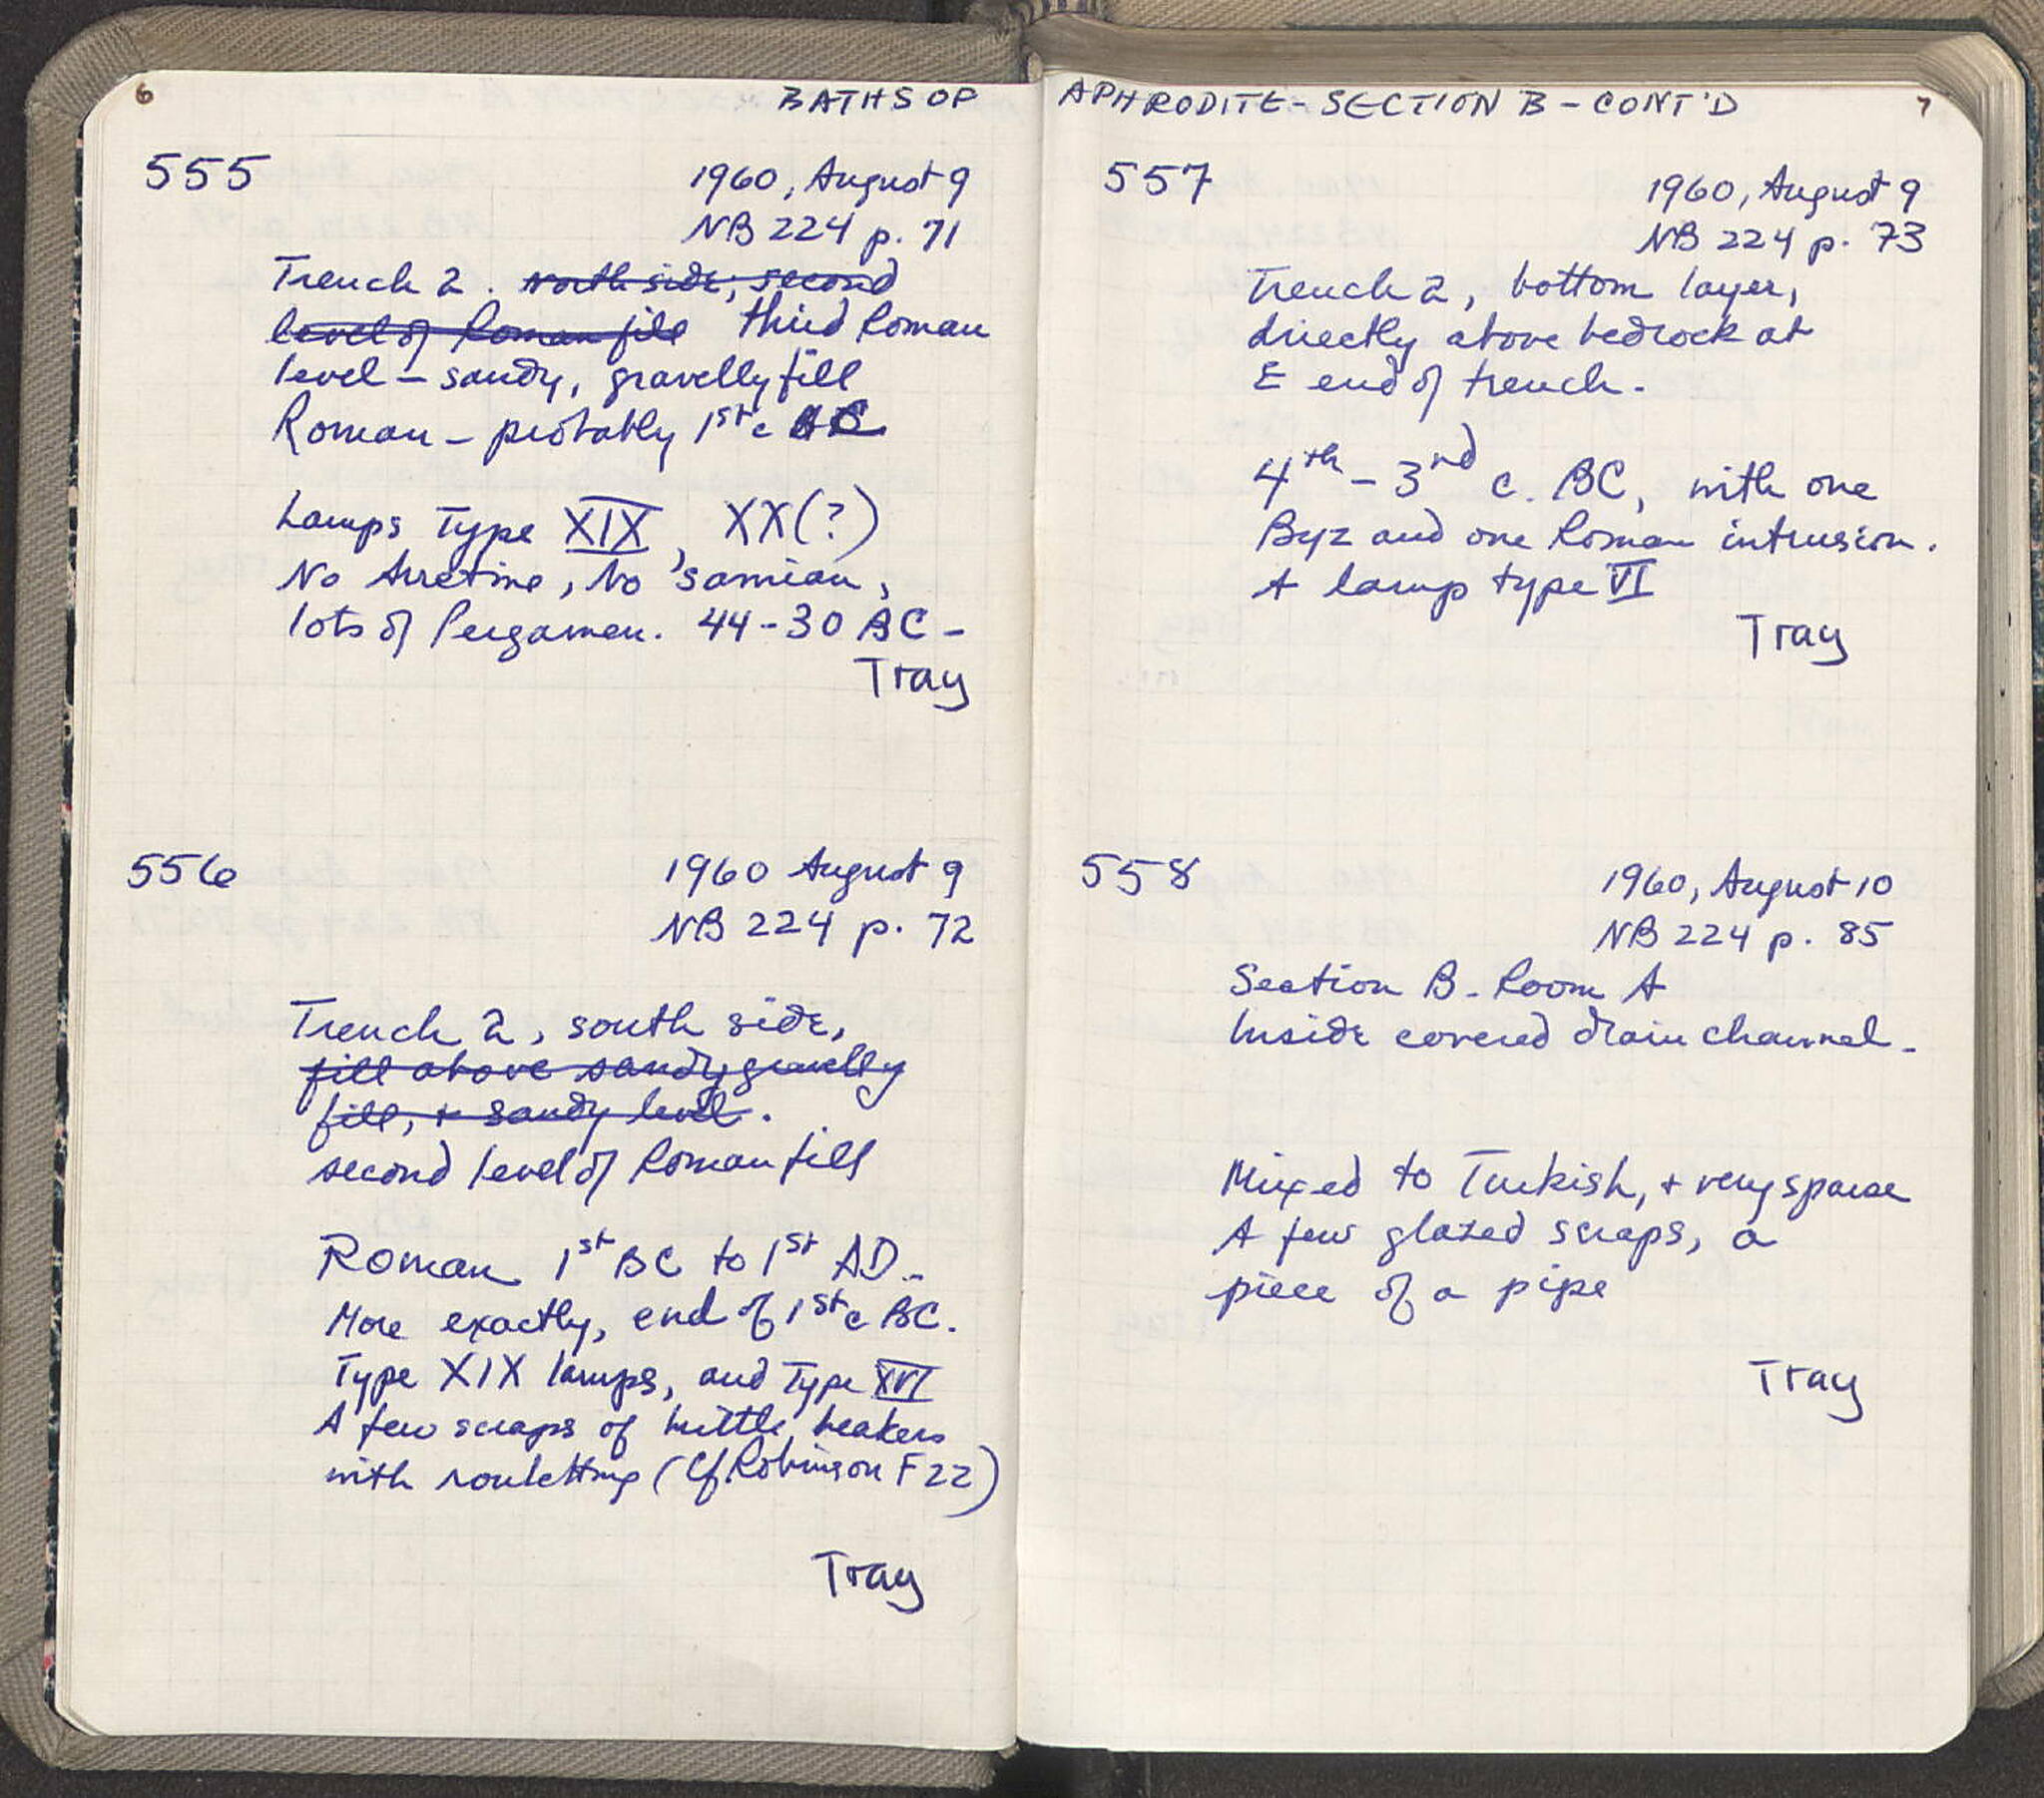 6
BATHS OF
555
1960, August 9
NB 224 p. 71
Trench 2. north side, second
level of Roman fill third Roman
level – sandy, gravelly fill
Roman – probably 1st c
Lamps Type XIX, XX(?)
No Arretine, No 'samian,
lots of Pergamen. 44-30 BC –
Tray
556
1960 August 9
NB 224 p. 72
Trench 2, south side,
fill above sandy gravelly
fill, + sandy level.
second level of Roman fill
Roman 1st BC to 1st AD –
More exactly, end of 1st c BC.
Type XIX lamps, and Type XVI
A few scraps of brittle beakers
with rouletting (Cf Robinson F 22)
Tray
APHRODITE – SECTION B – CONT'D
7
557
1960, August 9
NB 224 p. 73
Trench 2, bottom layer,
directly above bedrock at
E end of trench.
4th – 3rd c. BC, with one
Byz and one Roman intrusion.
A lamp type VI
Tray
558
1960, August 10
NB 224 p. 85
Section B – Room A
Inside covered drain channel –
Mixed to Turkish, + very sparse
A few glazed scraps, a
piece of a pipe
Tray